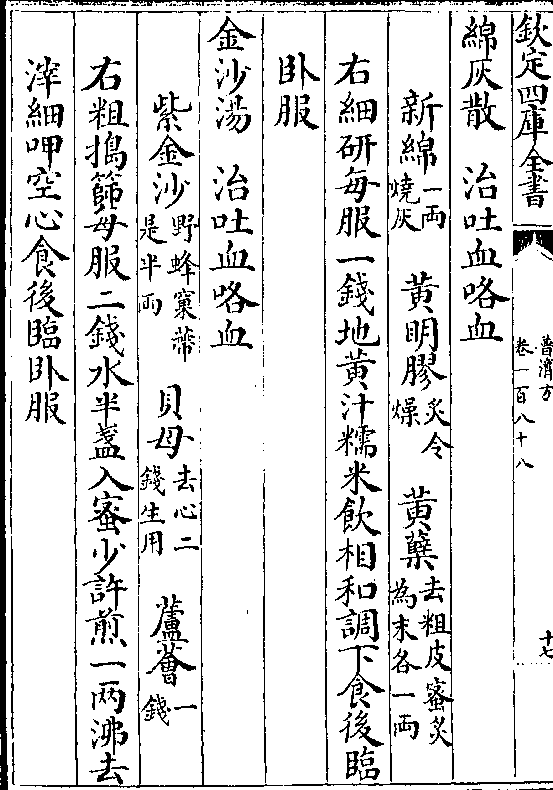 欽定四庫全書
普濟方
卷一百八十八
十七
綿灰散　治吐血咯血
新綿一両燒灰　黄明膠炙令燥　黄蘗去粗皮蜜炙為末各一両
右細研每服一錢地黄汁糯米飲相和調下食後臨
卧服
金沙湯　治吐血咯血
紫金沙野蜂窠蒂是半両　貝母去心二錢生用　蘆薈一錢
右粗搗篩每服二錢水半盞入蜜少許煎一两沸去
滓細呷空心食後臨卧服